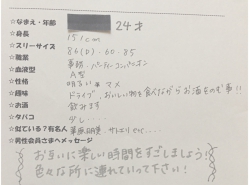 ☆なまえ・年齢 24才
☆身長 151cm
☆スリーサイズ 86(D)・60・85
☆職業 事務・パーティーコンパニオン
☆血液型 A型
☆性格 明るい★マメ
☆趣味 ドライブ、おいしい物を食べながらお酒をのむ事!!
☆お酒 飲みます
☆タバコ 少し…
☆似ている?有名人
☆男性会員さまへメッセージ
お互いに楽しい時間をすごしましょう!
色々な所に連れていって下さい!